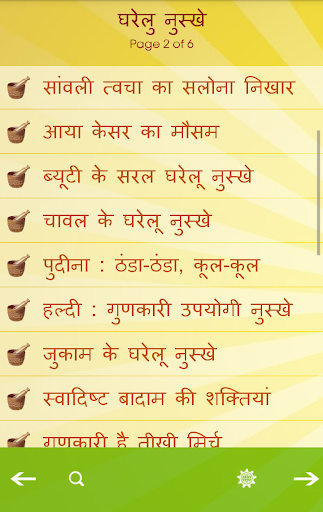 घरेलु नुस्खे
Page 2 of 6
सांवली त्वचा का सलोना निखार
आया केसर का मौसम
ब्यूटी के सरल घरेलू नुस्खे
चावल के घरेलू नुस्खे
पुदीना : ठंडा-ठंडा, कूल-कूल
हल्दी : गुणकारी उपयोगी नुस्खे
जुकाम के घरेलू नुस्खे
स्वादिष्ट बादाम की शक्तियां
गुणकारी है तीखी मिर्च